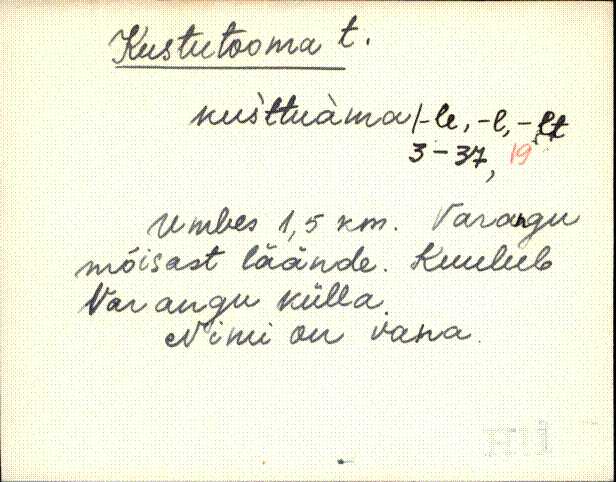 Kustutooma t.
kus̀ttuàma/-le, -l, -lt
3-37, 19
Umbes 1,5 km. Varangu
mõisast läände. Kuulub
Varangu külla.
Nimi on vana.